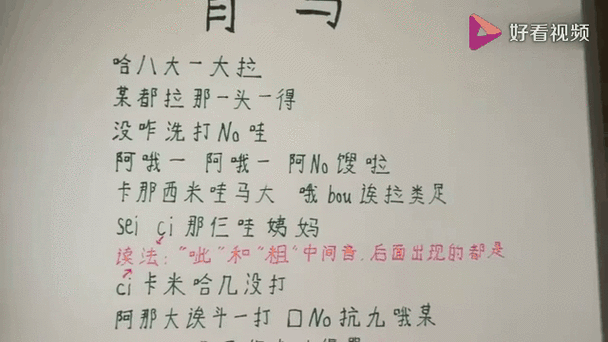 好看视频
哈八大一大拉
某都拉那一头一得
没咋洗打No哇
阿哦一 阿哦一 阿No馊啦
卡那西米哇马大 哦bou诶拉类足
sei ci那仨哇姨妈
读法:"呲"和"粗"中间音.后面出现的都是
ci卡米哈几没打
阿那大诶斗一打 口No抗九哦某